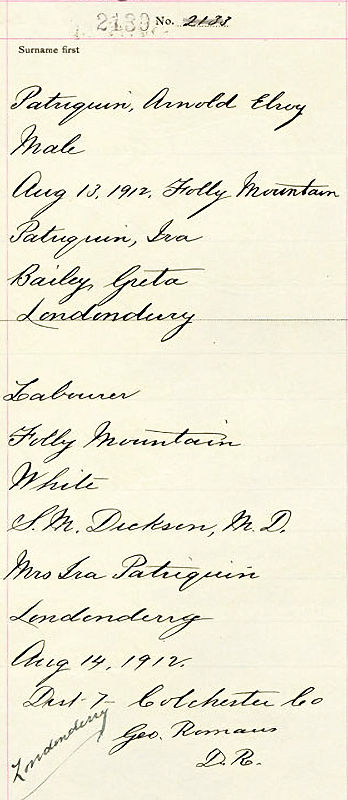 2139 No. 2133
Surname first
Patriquin, Arnold Elroy
Male
Aug 13, 1912, Folly Mountain
Patriquin, Ira
Bailey, Greta
Londonderry
Labourer
Folly Mountain
White
S. M. Dickson, M. D.
Mrs Ira Patriquin
Londonderry
Aug 14, 1912.
Dist 7 Colchester Co
Geo. Romans
D. R.
Londonderry